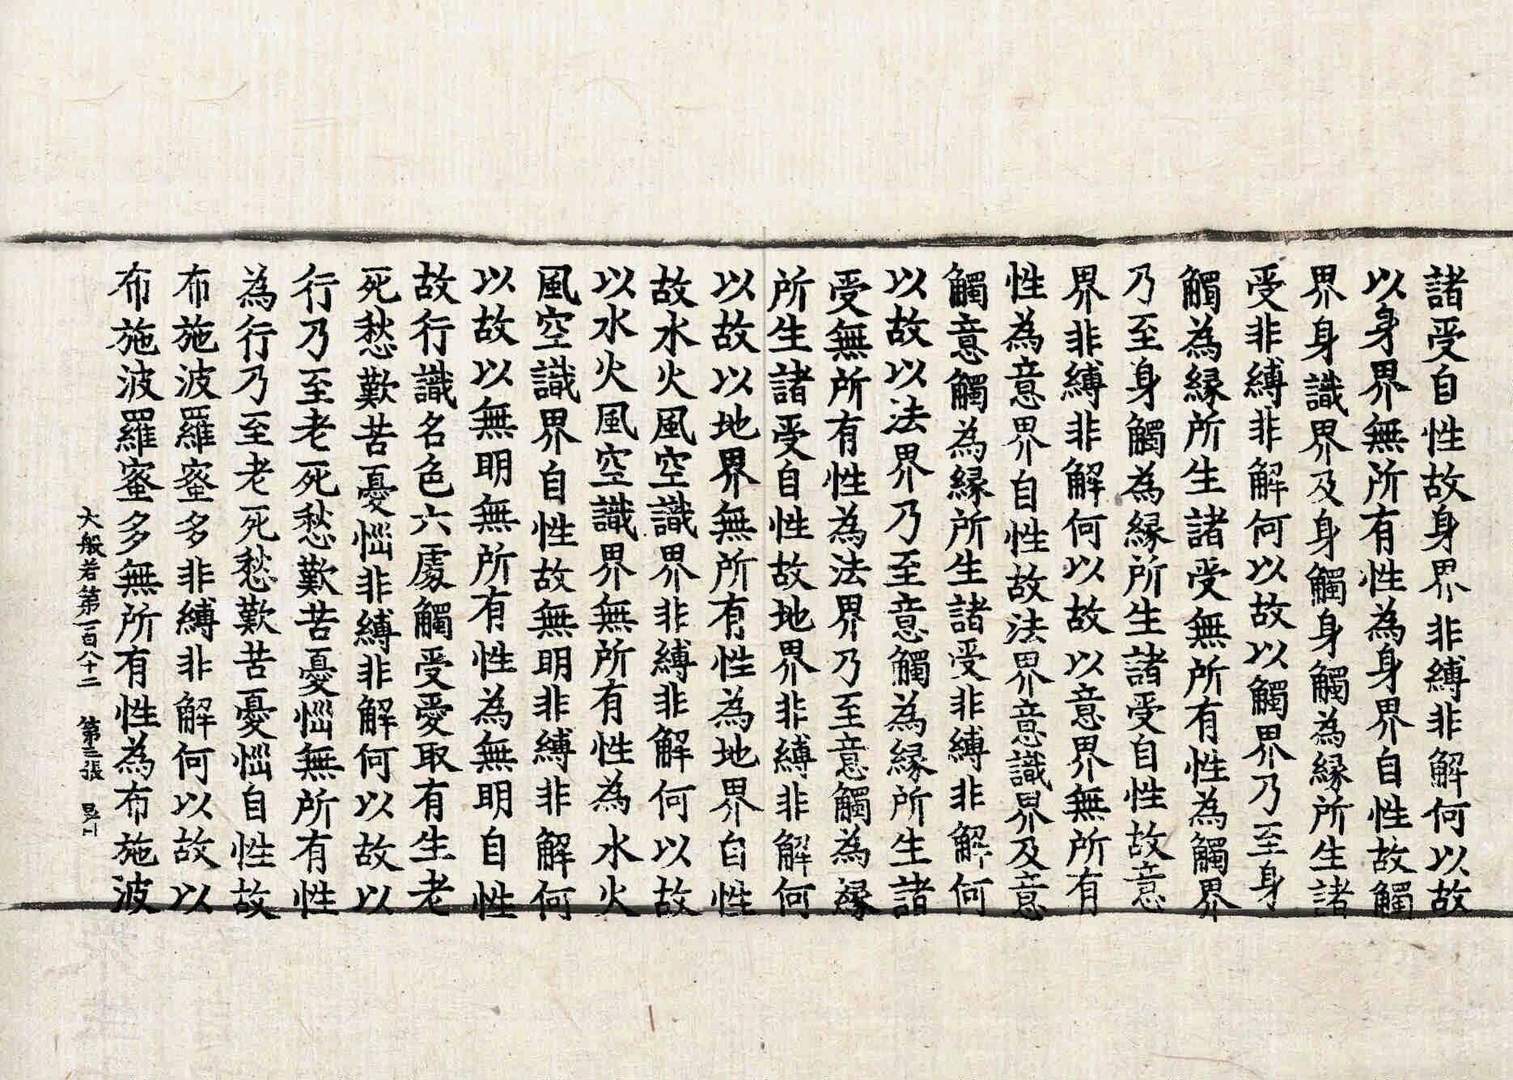 諸受自性故身界非縛非解何以故
以身界無所有性為身界自性故觸
界身識界及身觸身觸為縁所生諸
受非縛非解何以故以觸界乃至身
觸為縁所生諸受無所有性為觸界
乃至身觸為縁所生諸受自性故意
界非縛非解何以故以意界無所有
性為意界自性故法界意識界及意
觸意觸為縁所生諸受非縛非解何
以故以法界乃至意觸為縁所生諸
受無所有性為法界乃至意觸為縁
所生諸受自性故地界非縛非解何
以故以地界無所有性為地界自性
故水火風空識界非縛非解何以故
以水火風空識界無所有性為水火
風空識界自性故無明非縛非解何
以故以無明無所有性為無明自性
故行識名色六處觸受愛取有生老
死愁歎苦憂惱非縛非解何以故以
行乃至老死愁歎苦憂惱無所有性
為行乃至老死愁歎苦憂惱自性故
布施波羅蜜多非縛非解何以故以
布施波羅蜜多無所有性為布施波
大般若第一百八十二 第三張